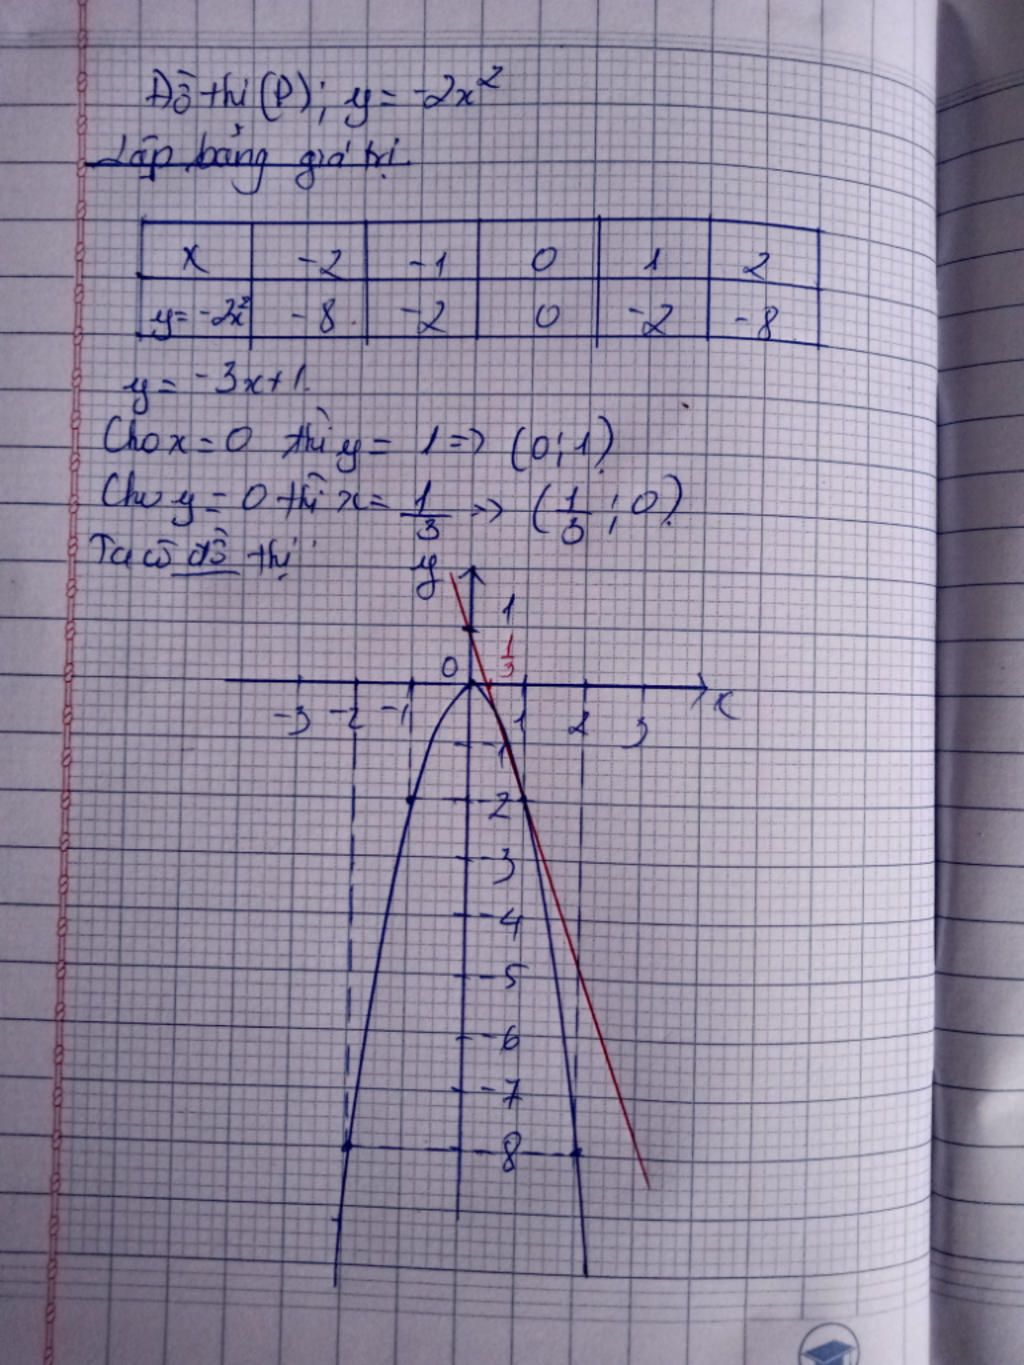 Đồ thị (P); y = -2x²
Lập bảng giá trị
x -2 -1 0 1 2
y = -2x² -8 -2 0 -2 -8
y = -3x+1.
Cho x = 0 thì y = 1 => (0;1)
Cho y = 0 thì x = 1/3 => (1/3 ; 0).
Ta có đồ thị
y
1
1/3
0
-3 -2 -1 1 2 3 x
-1
-2
-3
-4
-5
-6
-7
-8